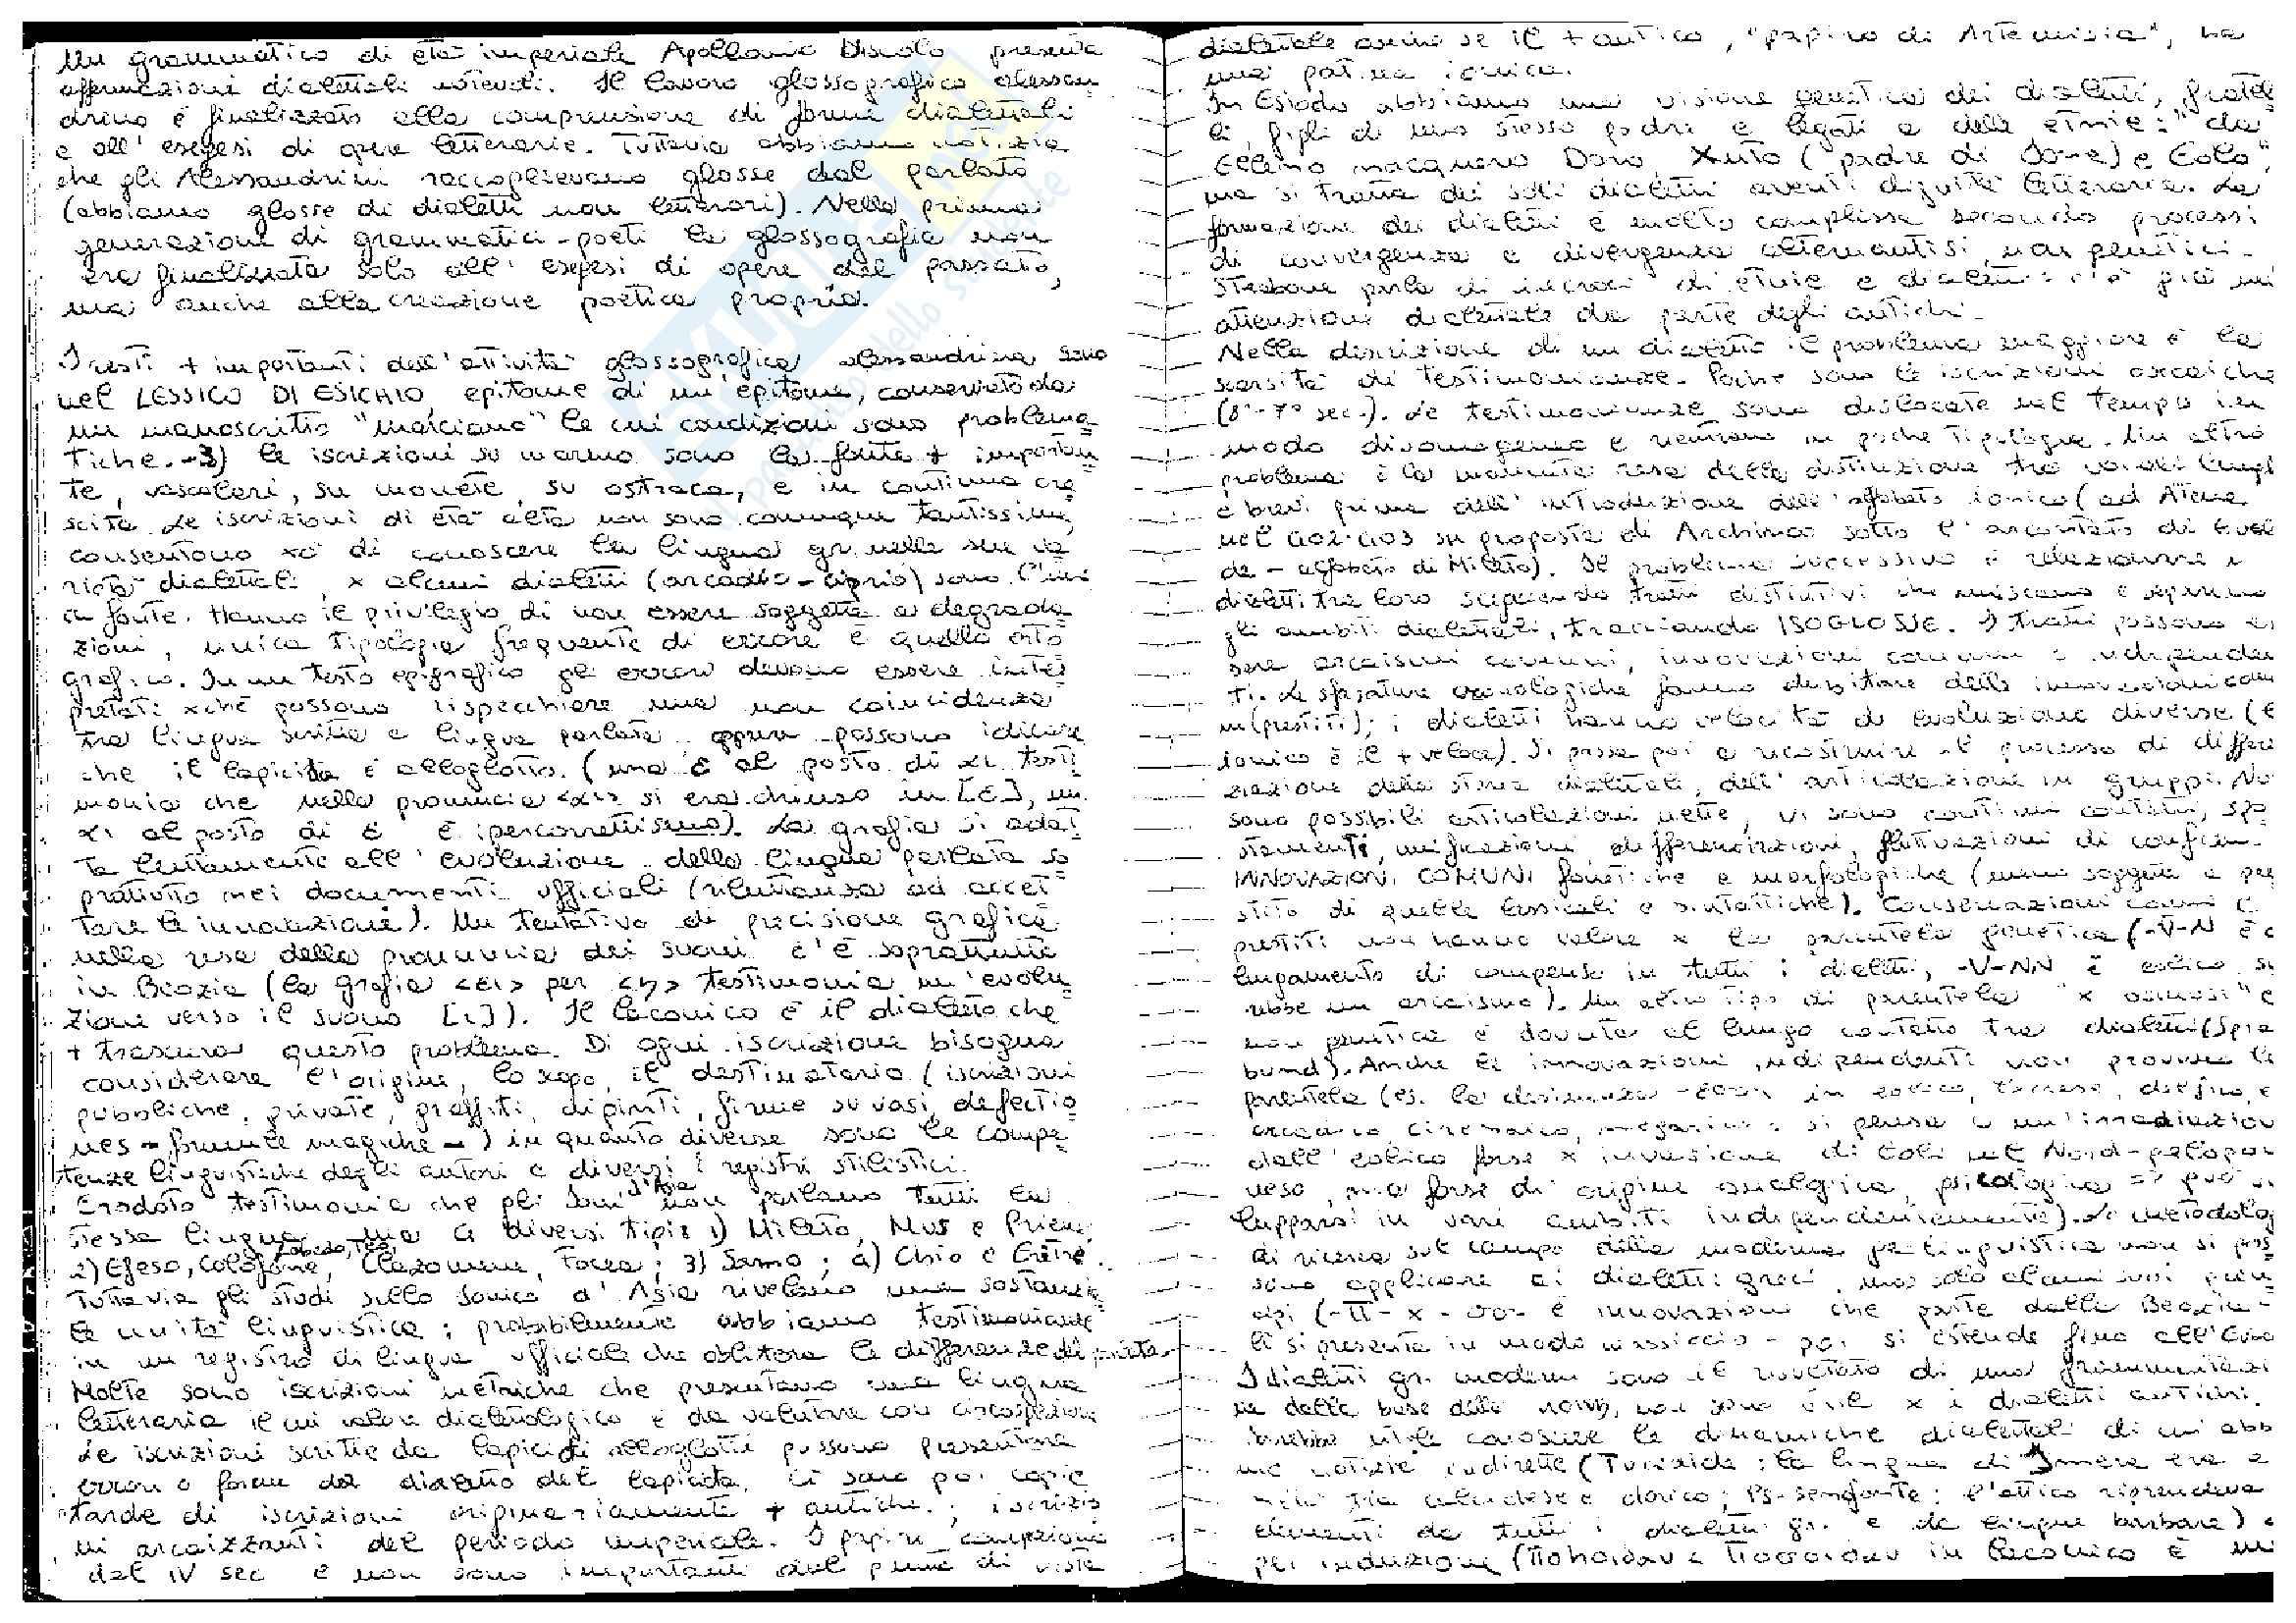 Un grammatico di età imperiale Apollonio Discolo presenta
affermazioni dialettali notevoli. Il lavoro glossografico alessan
drino è finalizzato alla comprensione di forme dialettali
e all' esegesi di opere letterarie. Tuttavia abbiamo notizia
che gli Alessandrini raccoglievano glosse dal parlato
(abbiamo glosse di dialetti non letterari). Nella prima
generazione di grammatici-poeti la glossografia non
era finalizzata solo all' esegesi di opere del passato,
ma anche alla creazione poetica propria.
I resti + importanti dell' attività glossografica alessandrina sono
nel LESSICO DI ESICHIO, epitome di un' epitome, conservato da
un manoscritto "marciano" le cui condizioni sono problema
tiche. -3) le iscrizioni su marmo sono la fonte + importan
te, vascolari, su monete, su ostraca, e in continua cre
scita. Le iscrizioni di età alta non sono comunque tantissime,
consentono xò di conoscere la lingua gr. nelle sue va
rietà dialettali, x alcuni dialetti (arcadico-ciprio) sono l'uni
ca fonte. Hanno il privilegio di non essere soggette a degrada
zioni, unica tipologia frequente di errore è quello orto
grafico. In un testo epigrafico gli errori devono essere inter
pretati xché possono rispecchiare una non coincidenza
tra lingua scritta e lingua parlata, oppure possono idicare
che il lapicida è alloglotto. (una ε al posto di αι testi
monia che nella pronuncia <αι> si era chiuso in [ε], un
αι al posto di ε è ipercorrettismo). La grafia si adat
ta lentamente all' evoluzione della lingua parlata so
prattutto nei documenti ufficiali (riluttanza ad accet
tare le innovazione). Un tentativo di precisione grafica
nella resa della pronuncia dei suoni c'è soprattutto
in Beozia (la grafia <ει> per <η> testimonia un' evolu
zione verso il suono [i]). Il laconico è il dialetto che
+ trascura questo problema. Di ogni iscrizione bisogna
considerare l'origine, lo scopo, il destinatario (iscrizioni
pubbliche, private, graffiti, dipinti, firme su vasi, defectio
nes - formule magiche -) in quanto diverse sono le compe
tenze linguistiche degli autori e diversi i registri stilistici.
Erodoto testimonia che gli Ioni d'Asia non parlano tutti la
stessa lingua, ma 4 diversi tipi: 1) Mileto, Mus e Priene,
2) Efeso, Colofone, Lebedo, Teo, Clazomene, Focea; 3) Samo; 4) Chio e Eritre.
Tuttavia gli studi sullo Ionico d' Asia rivelano una sostanzia
le unità linguistica; probabilmente abbiamo testimonianze
in un registro di lingua ufficiale che oblitera le differenze del parlato.
Molte sono iscrizioni metriche che presentano una lingua
letteraria il cui valore dialettologico è da valutare con circospezione
Le iscrizioni scritte da lapicidi alloglotti possono presentare
errori o forme del dialetto del lapicida. Ci sono poi copie
tarde di iscrizioni originariamente + antiche; iscrizio
ni arcaizzanti del periodo imperiale. I papiri
dal IV sec e non sono importanti dal punto di vista
dialettale anche se il + antico, "papiro di Artemisia", ha
una patina ionica.
In Esiodo abbiamo una visione genetica dei dialetti, fratel
li, figli di uno stesso padre e legati a delle etnie: "da
Elleno nacquero Doro Xuto (padre di Ione) e Eolo",
ma si tratta dei soli dialetti aventi dignità letteraria. La
formazione dei dialetti è molto complessa secondo processi
di convergenza e divergenza alternantisi, non genetici.
Strabone parla di incroci di etnie e dialetti: c'è già un'
attenzione dialettale da parte degli antichi.
Nella descrizione di un dialetto il problema maggiore è la
scarsità di testimonianze. Poche sono le iscrizioni arcaiche
(8°-7° sec.). Le testimonianze sono dislocate nel tempo in
modo disomogeneo e rientrano in poche tipologie. Un altro
problema è la mancata resa della distinzione tra vocali lunghe
e brevi prima dell' introduzione dell' alfabeto ionico (ad Atene
nel 402-403 su proposta di Archino sotto l' arcontato di Eucli
de - alfabeto di Mileto). Il problema successivo è relazionare i
dialetti tra loro scegliendo tratti distintivi che uniscano e separino
gli ambiti dialettali, tracciando ISOGLOSSE. I tratti possono es
sere arcaismi comuni, innovazioni comuni o indipenden
ti. Le sfasature cronologiche fanno dubitare delle innovazioni comu
ni (prestiti); i dialetti hanno velocità di evoluzione diverse (lo
ionico è il + veloce). Si passa poi a ricostruire il processo di differen
ziazione della storia dialettale, dell' articolazione in gruppi. Non
sono possibili articolazioni nette, vi sono continui contatti, spo
stamenti, unificazioni, differenziazioni, fluttuazioni di confini.
INNOVAZIONI COMUNI fonetiche e morfologiche (meno soggette a pre
stito di quelle lessicali o sintattiche). Conservazioni comuni e
prestiti non hanno valore x la parentela genetica (-V̄-N è
lungamento di compenso in tutti i dialetti, -V-NN è eolico
rebbe un arcaismo). Un altro tipo di parentela "x osmosi" e
non genetica è dovuta al lungo contatto tra dialetti (Spra
bund). Anche le innovazioni indipendenti non provano la
parentela (es. la desinenza -εσσι in eolico, locrese, delfico,
arcadico, cirenaico, megarico: si pensa a un' irradiazion
dall' eolico forse x invasione di Eoli nel Nord-pelopon
neso, ma forse di origine analogica, psicologica => può
lupparsi in vari ambiti indipendentemente). Le metodolog
di ricerca sul campo della moderna geolinguistica non si pos
sono applicare ai dialetti greci, ma solo alcuni suoi prin
cipi (-ττ- x -σσ- è innovazione che parte dalla Beozia -
lì si presenta in modo massiccio - poi si estende fino all'Eubea
I dialetti gr. moderni sono il risultato di una frammentazi
ne della base della κοινη, non sono utili x i dialetti antichi.
Sarebbe utile conoscere le dinamiche dialettali di cui abb
mo notizie indirette (Tucidide: la lingua di Imera era a
metà tra calcidese e dorico; Ps-Senofonte: l'attico riprendeva
elementi da tutti i dialetti gr. e da lingue barbare)
per induzione (Ποhοιδαν e Ποσοιδαν in laconico è un